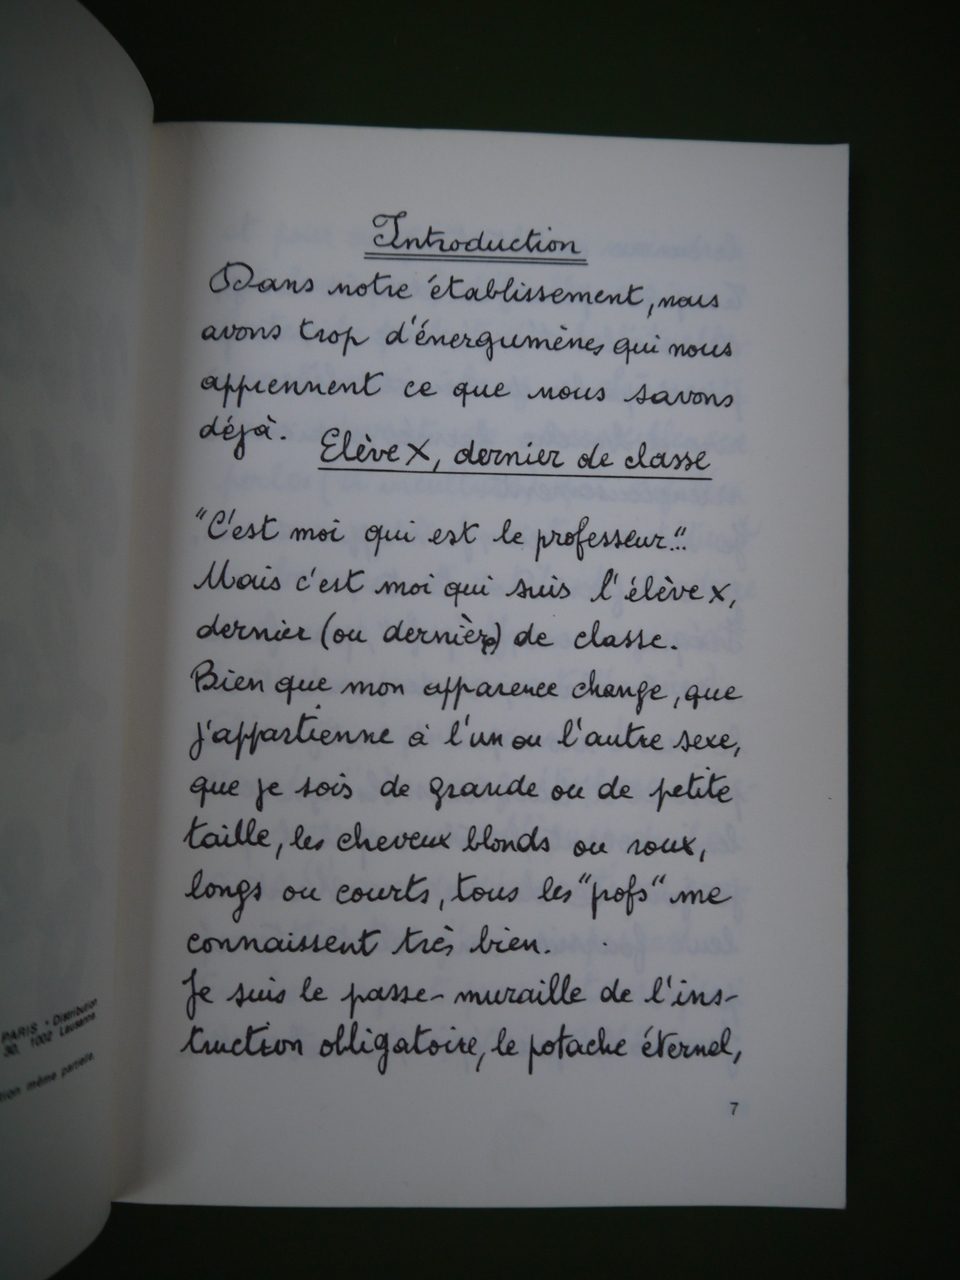 PARIS * Distribution
30, 1002 Lausanne
tion même partielle.
Introduction
Dans notre établissement, nous
avons trop d'énergumènes qui nous
apprennent ce que nous savons
déjà.
Elève X, dernier de classe
"C'est moi qui est le professeur..."
Mais c'est moi qui suis l'élève X,
dernier (ou dernière) de classe.
Bien que mon apparence change, que
j'appartienne à l'un ou l'autre sexe,
que je sois de grande ou de petite
taille, les cheveux blonds ou roux,
longs ou courts, tous les "pofs" me
connaissent très bien.
Je suis le passe-muraille de l'ins-
truction obligatoire, le potache éternel,
7